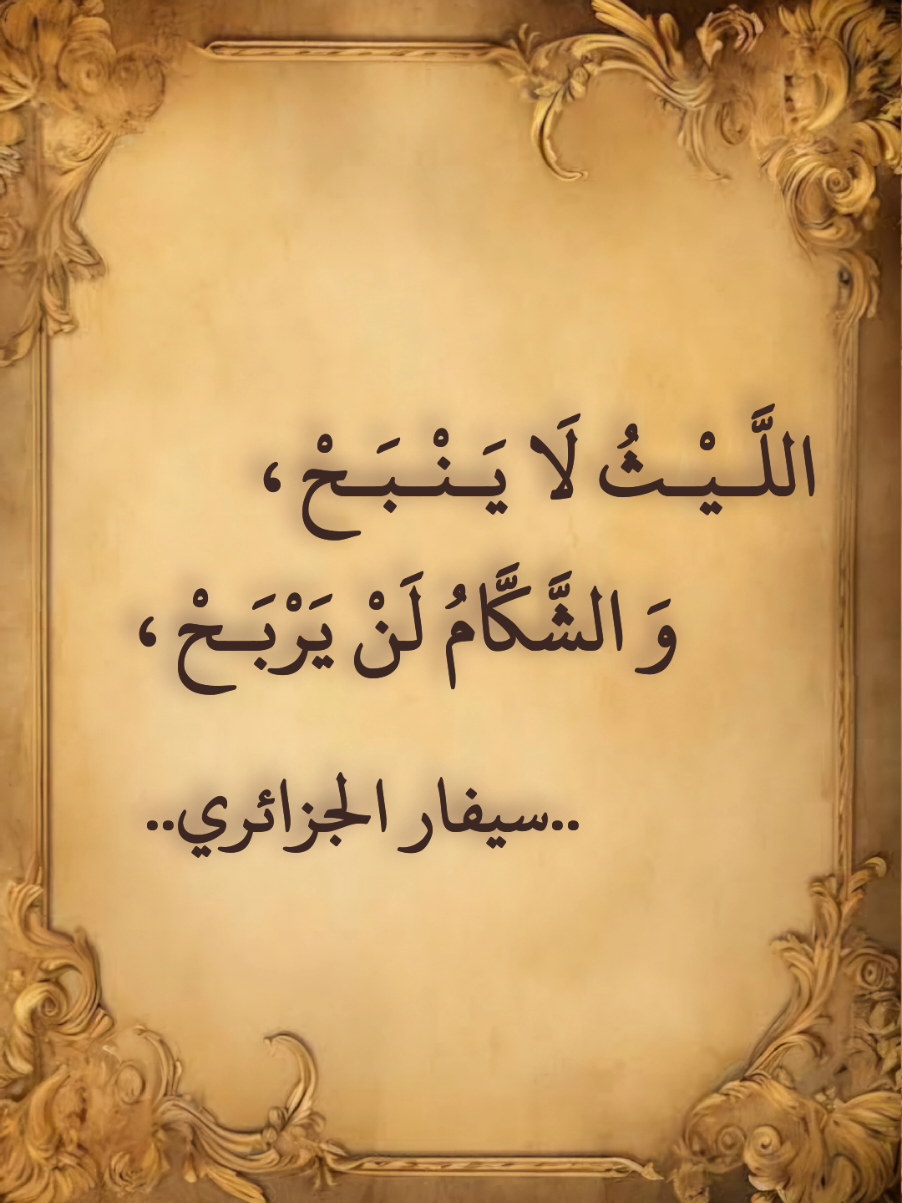 اللَّـيْـثُ لَا يَـنْـبَـحْ ،
وَ الشَّكَّامُ لَنْ يَرْبَـحْ ،
..سيفار الجزائري..